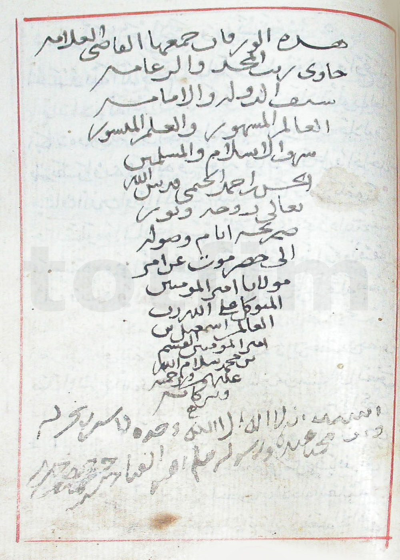 هذه الورقات جمعها القاضي العلامه
حاوي رتب المجد والزعامه
سيف الدوله والامامه
العالم المشهور والعلم المنشور
شرف الاسلام والمسلمين
الحسن احمد الحيمي قدس الله
تعالى روحه ونور
ضريحه ايام وصوله
الى حضرموت عن امر
مولانا امير المومنين
المتوكل على الله رب
العالمين اسمعيل بن
امير المومنين القسم
بن محمد سلام الله
عليهم ورحمته
وبركاته
اشهد ان لا اله الا الله وحده لا شريك له
محمدا عبده ورسوله